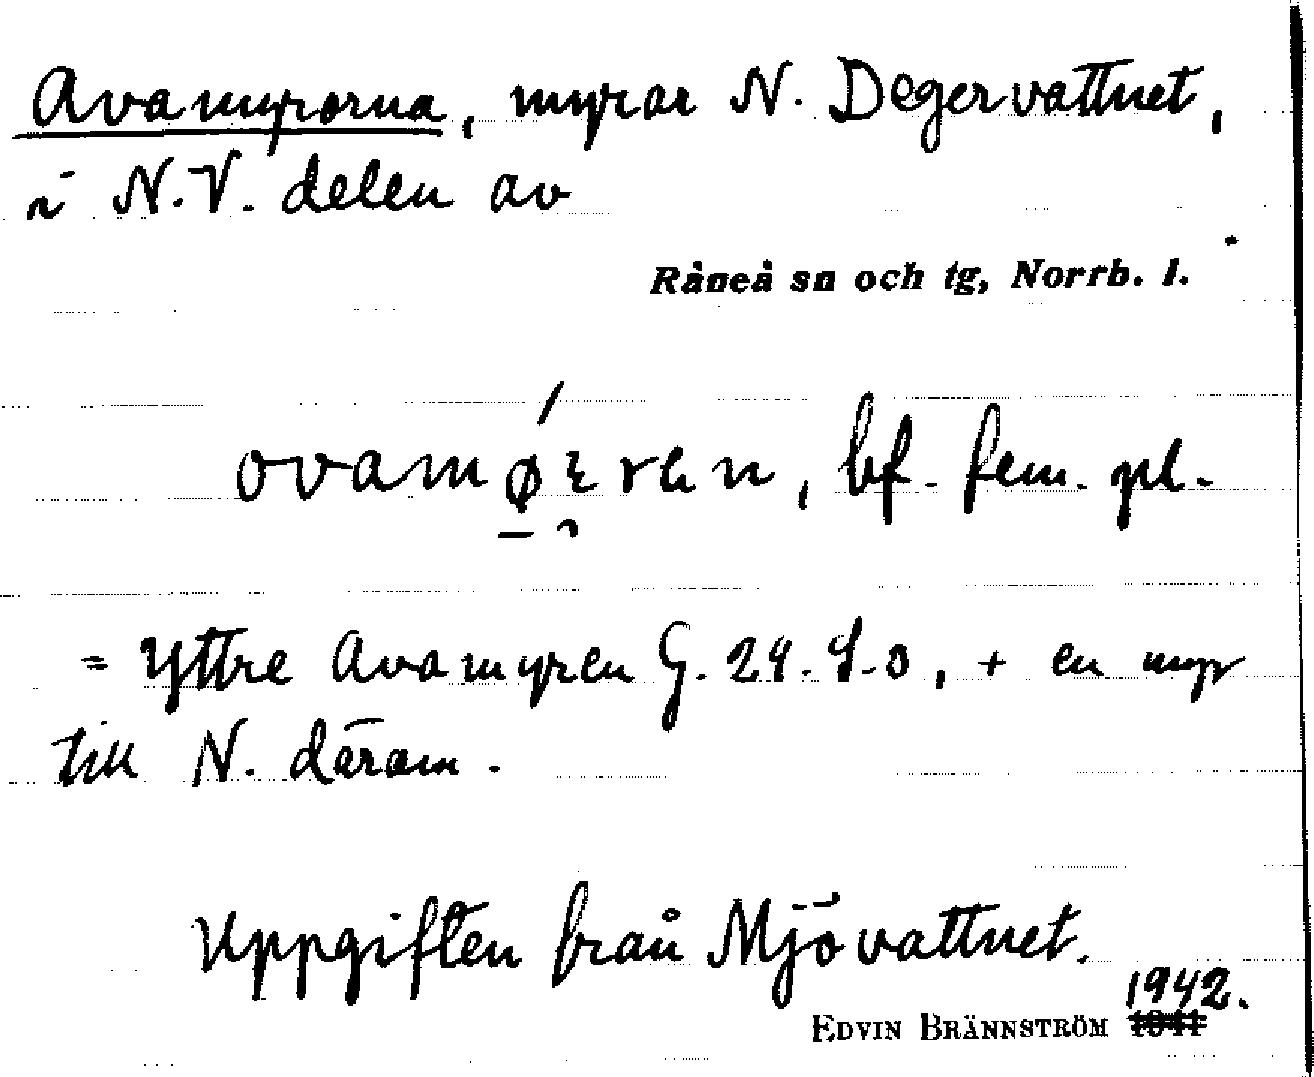 Avamyrorna, myrar N. Degervattnet,
i N.V. delen av
Råneå sn och tg, Norrb. l.
bf. fem. pl.
= Yttre Avamyren G. 24. 4-3, + en myr
till N. därom.
Uppgiften från Mjövattnet.
1942.
EDVIN BRÄNNSTRÖM 1941